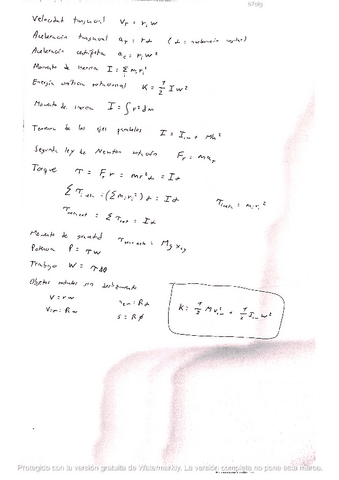 Velocidad tangencial v_T = r, w
Aceleración tangencial a_T = r α (α = aceleración angular)
Aceleración centrípeta a_c = r, w²
Momento de inercia I = Σ m_i r_i²
Energía cinética rotacional K = 1/2 I w²
Momento de inercia I = ∫ r² dm
Teorema de los ejes paralelos I = I_cm + Md²
Segunda ley de Newton rotación F_T = m a_T
Torque τ = F_T r = m r² α = I α
= (Σ m_i r_i²) α = I α
= Σ τ_ext = I α
Momento de gravedad = M g x_cg
Potencia P = τ w
Trabajo W = τ Δθ
Objetos rodando sin deslizamiento
v = r w
v_cm = R w
a_cm = R α
s = R θ
K = 1/2 M v²_cm + 1/2 I_cm w²
Protegido con la versión gratuita de Watermarkly. La versión completa no pone esta marca.